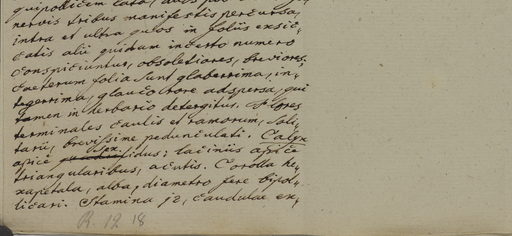 quipollicem lata,
nervis tribus manifestis percursa,
intra et ultra quos in foliis exsic-
catis alii quidam incerto numero
conspiciuntur, obsoletiores, breviores;
caeterum folia sunt glaberrima, in-
tegerrima, glauco rore adspersa, qui
tamen in herbario detergitur. Flores
terminales caulis et ramorum, soli-
tarii, brevissime pedunculati. Calyx
apice sex-fidus; laciniis apice
triangularibus, acutis. Corolla he-
xapetala, alba, diametro fere bipol-
licari. Stamina 12, caudulae ex-
R. 19 18